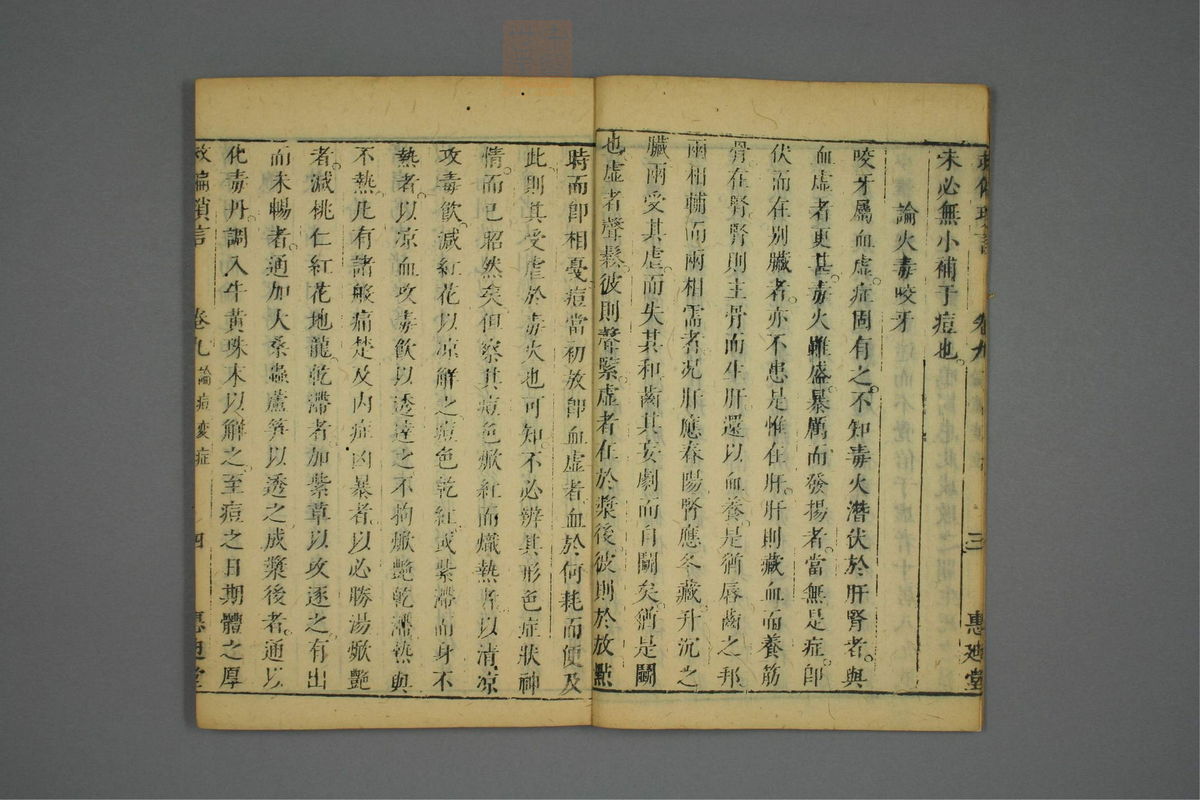 救偏瑣言 卷九 三 惠迪堂
未必無小補于痘也
論火毒咬牙
咬牙屬血虛症固有之不知毒火潛伏於肝腎者與
血虛者更甚毒火雖盛暴厲而發揚者當無是症即
伏而在別臟者亦不患是惟在肝肝則藏血而養筋
骨在腎腎則主骨而生肝還以血養是猶唇齒之邦
兩相輔而兩相需者况肝應春陽腎應冬藏升沉之
臟兩受其虐而失其和齒其安劇而自鬬矣猶是鬬
也虛者聲鬆彼則聲緊虛者在於漿後彼則於放點
時而卽相憂痘當初放卽血虛者血於何耗而便及
此則其受虐於毒火也可知不必辨其形色症狀神
情而已昭然矣但察其痘色焮紅而熾熱者以清凉
攻毒飲減紅花以凉解之痘色乾紅或紫滯而身不
熱者以凉血攻毒飲以透達之不拘焮艷乾滯熱與
不熱凡有諸般痛楚及内症凶暴者以必勝湯焮艷
者減桃仁紅花地龍乾滯者加紫草以攻逐之有出
而未暢者通加大桑蟲蘆笋以透之成漿後者通以
化毒丹調入牛黃珠末以解之至痘之日期體之厚
救偏瑣言 卷九 論痘變症 四 惠迪堂